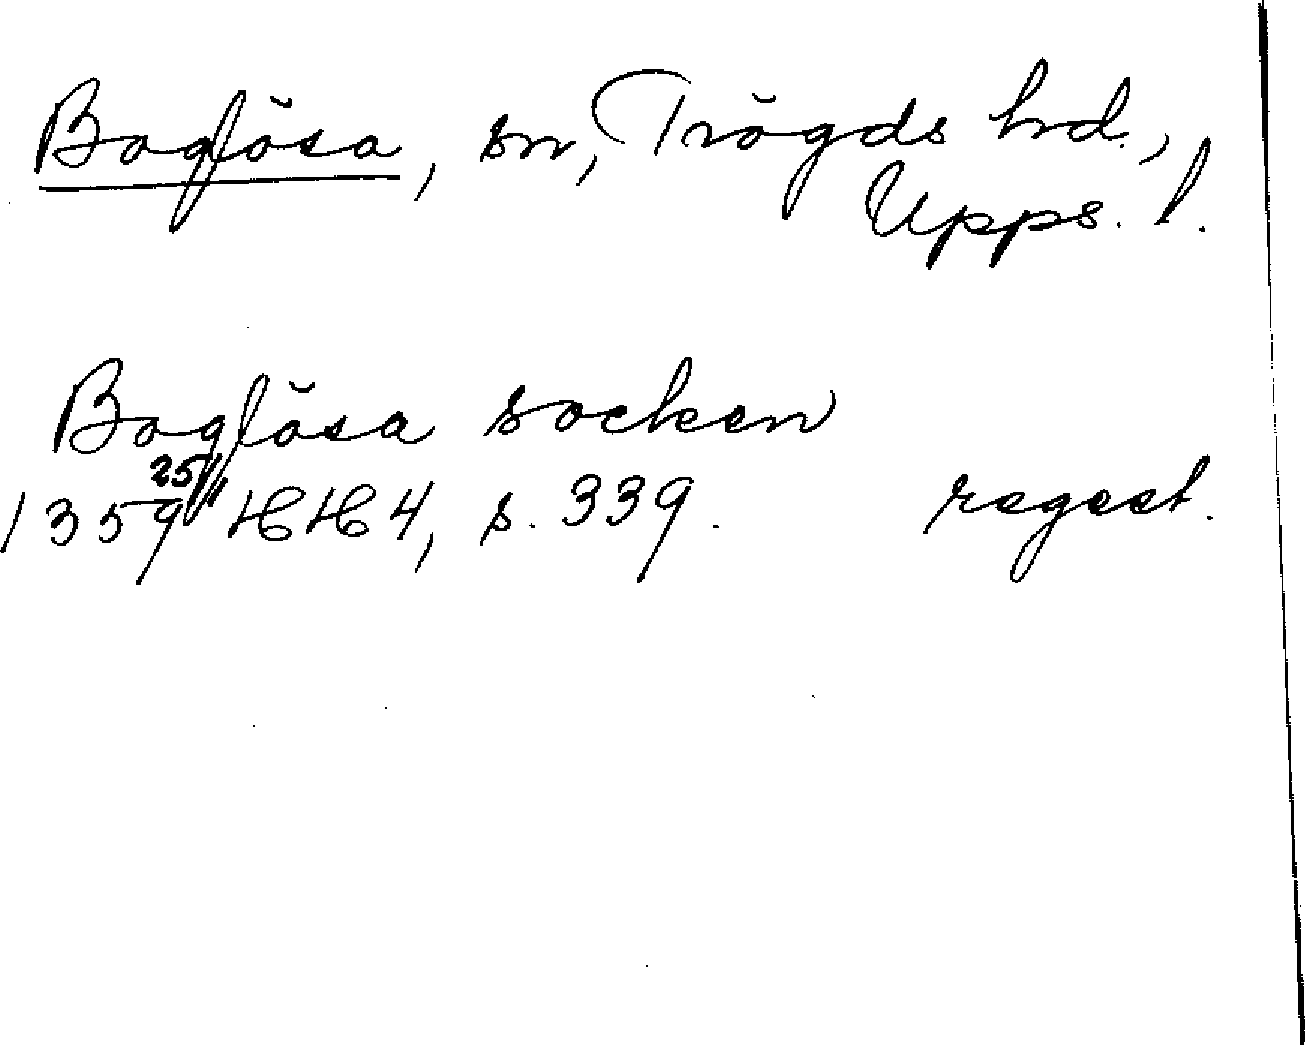 Boglösa, sn, Trögds hd.,
Upps. l.
Boglösa socken
1359 25/11 HH 4, s. 339. regest.